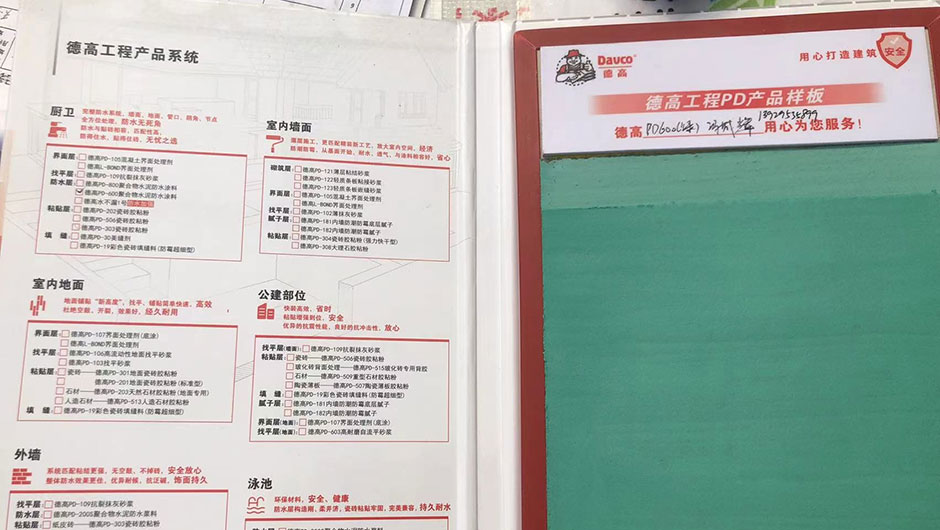 德高工程产品系统
厨卫
完整防水系统，墙面、地面、管口、阴角、节点
全方位处理，防水无死角
防水与黏转相容，匹配性高，
防得住水，贴得住砖，无忧之选
界面层：德高PD-105混凝土界面处理剂
德高L-BOND界面处理剂
找平层：德高PD-109抗裂抹灰砂浆
防水层：德高PD-800聚合物水泥防水涂料
德高PD-600聚合物水泥防水涂料
德高水不漏1号防水加强
粘贴层：德高PD-202瓷砖胶粘粉
德高PD-506瓷砖胶粘粉
德高PD-303瓷砖胶粘粉
填 缝：德高PD-30美缝剂
德高PD-19彩色瓷砖填缝料(防霉超细型)
室内墙面
薄层施工，更匹配精装新工艺，放大室内空间，经济
防潮防霉，从基面开始，耐水、透气，与涂料相容好，省心
砌筑层：德高PD-121薄层粘结砂浆
德高PD-122轻质条板粘接砂浆
德高PD-123轻质条板嵌缝砂浆
界面层：德高PD-105混凝土界面处理剂
德高L-BOND界面处理剂
找平层：德高PD-102薄抹灰砂浆
腻子层：德高PD-181内墙防潮防霉底层腻子
德高PD-182内墙防潮防霉腻子
粘贴层：德高PD-304瓷砖胶粘粉(强力快干型)
德高PD-308大理石胶粘粉
室内地面
地面铺贴“新高度”，找平、铺贴简单快速，高效
杜绝空鼓、开裂，效果好，经久耐用
界面层：德高PD-107界面处理剂(底涂)
德高L-BOND界面处理剂
找平层：德高PD-106高流动性地面找平砂浆
德高PD-103找平砂浆
粘贴层：瓷砖——德高PD-301地面瓷砖胶粘粉
德高PD-201地面瓷砖胶粘粉(标准型)
石材——德高PD-203天然石材胶粘粉(地面专用)
人造石材——德高PD-513人造石材胶粘粉
填 缝：德高PD-19彩色瓷砖填缝料(防霉超细型)
公建部位
快装高效，省时
粘贴增强到位，安全
优异的抗震性能，良好的抗冲击性，放心
找平层(墙面)：德高PD-109抗裂抹灰砂浆
粘贴层：瓷砖——德高PD-506瓷砖胶粘粉
玻化砖背面处理——德高PD-515玻化砖专用背胶
石材——德高PD-509重型石材胶粘粉
陶瓷薄板——德高PD-507陶瓷薄板胶粘粉
填 缝：德高PD-19彩色瓷砖填缝料(防霉超细型)
腻子层：德高PD-181内墙防潮防霉底层腻子
德高PD-182内墙防潮防霉腻子
界面层(地面)：德高PD-107界面处理剂(底涂)
找平层(地面)：德高PD-603高耐磨自流平砂浆
外墙
系统匹配粘结更强，无空鼓、不掉砖，安全放心
整体防水效果更佳，优异耐候、抗泛碱，饰面持久
找平层：德高PD-109抗裂抹灰砂浆
防水层：德高PD-200S聚合物水泥防水浆料
粘贴层：纸皮砖——德高PD-303瓷砖胶粘粉
泳池
环保材料，安全、健康
防水层构造刚、柔并济，瓷砖粘贴牢固，完美兼容，持久耐水
Davco
德高
用心打造建筑
安全
德高工程PD产品样板
德高PD600(绿) 用心为您服务！